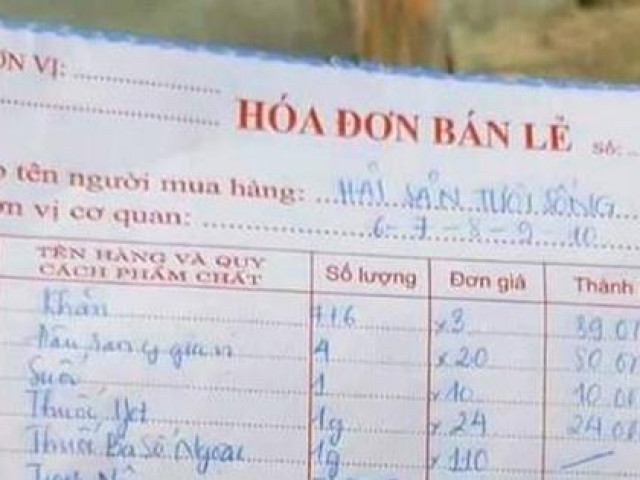 ƠN VỊ:
HÓA ĐƠN BÁN LẺ
SỐ:
tên người mua hàng: HẢI SẢN TƯƠI SỐNG
n vị cơ quan: 6-7-8-9-10
TÊN HÀNG VÀ QUY CÁCH PHẨM CHẤT Số lượng Đơn giá Thành
Khăn x3
4 x20
Suối 1 x10
Thuốc Jet 1g x24
Thuốc Ba Số Ngoại 1g x110